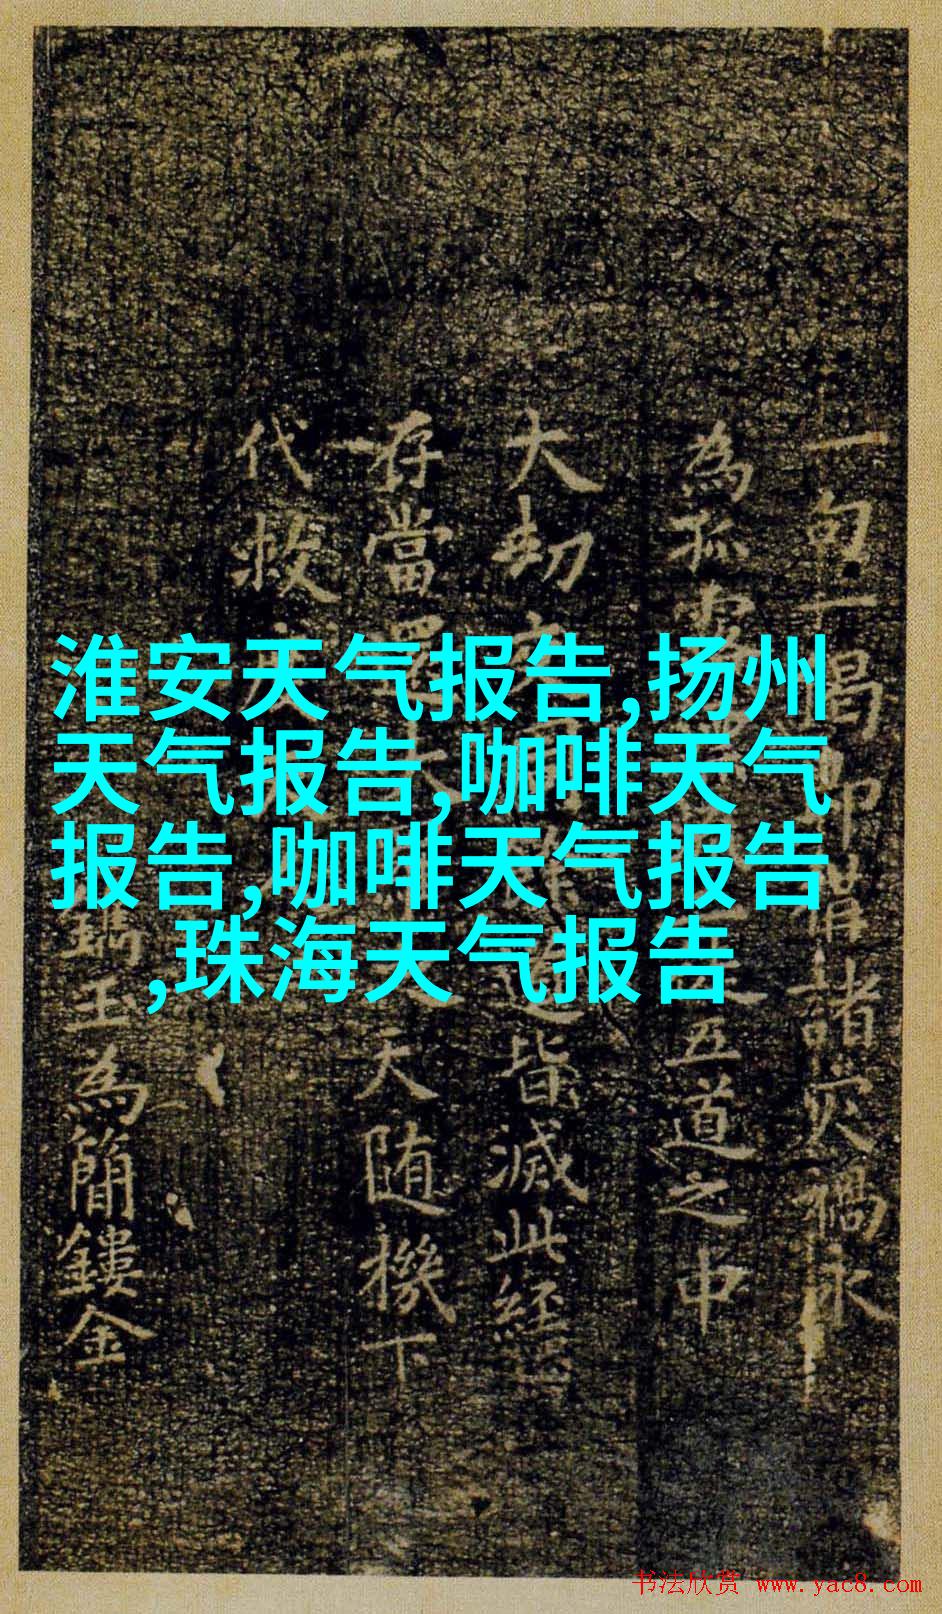 淮安天气报告,扬州
天气报告,咖啡天气
报告,咖啡天气报告
,珠海天气报告
一句一偈即惟諸灾禍永
為孤
五道之中
大劫
皆滅此經
存當
天随機下
代救
鐫玉為簡鏤金
书法欣赏 www.yac8.com